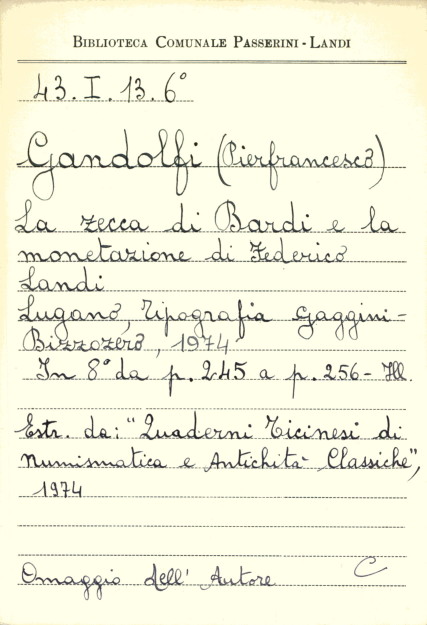 BIBLIOTECA COMUNALE PASSERINI - LANDI
43. I. 13. 6°
Gandolfi (Pierfrancesco)
La zecca di Bardi e la
monetazione di Federico
Landi
Lugano, Tipografia Gaggini-
Bizzozero, 1974
In 8° da p. 245 a p. 256 - Ill.
Estr. da: "Quaderni Ticinesi di
Numismatica e Antichità Classiche",
1974
Omaggio dell' Autore C